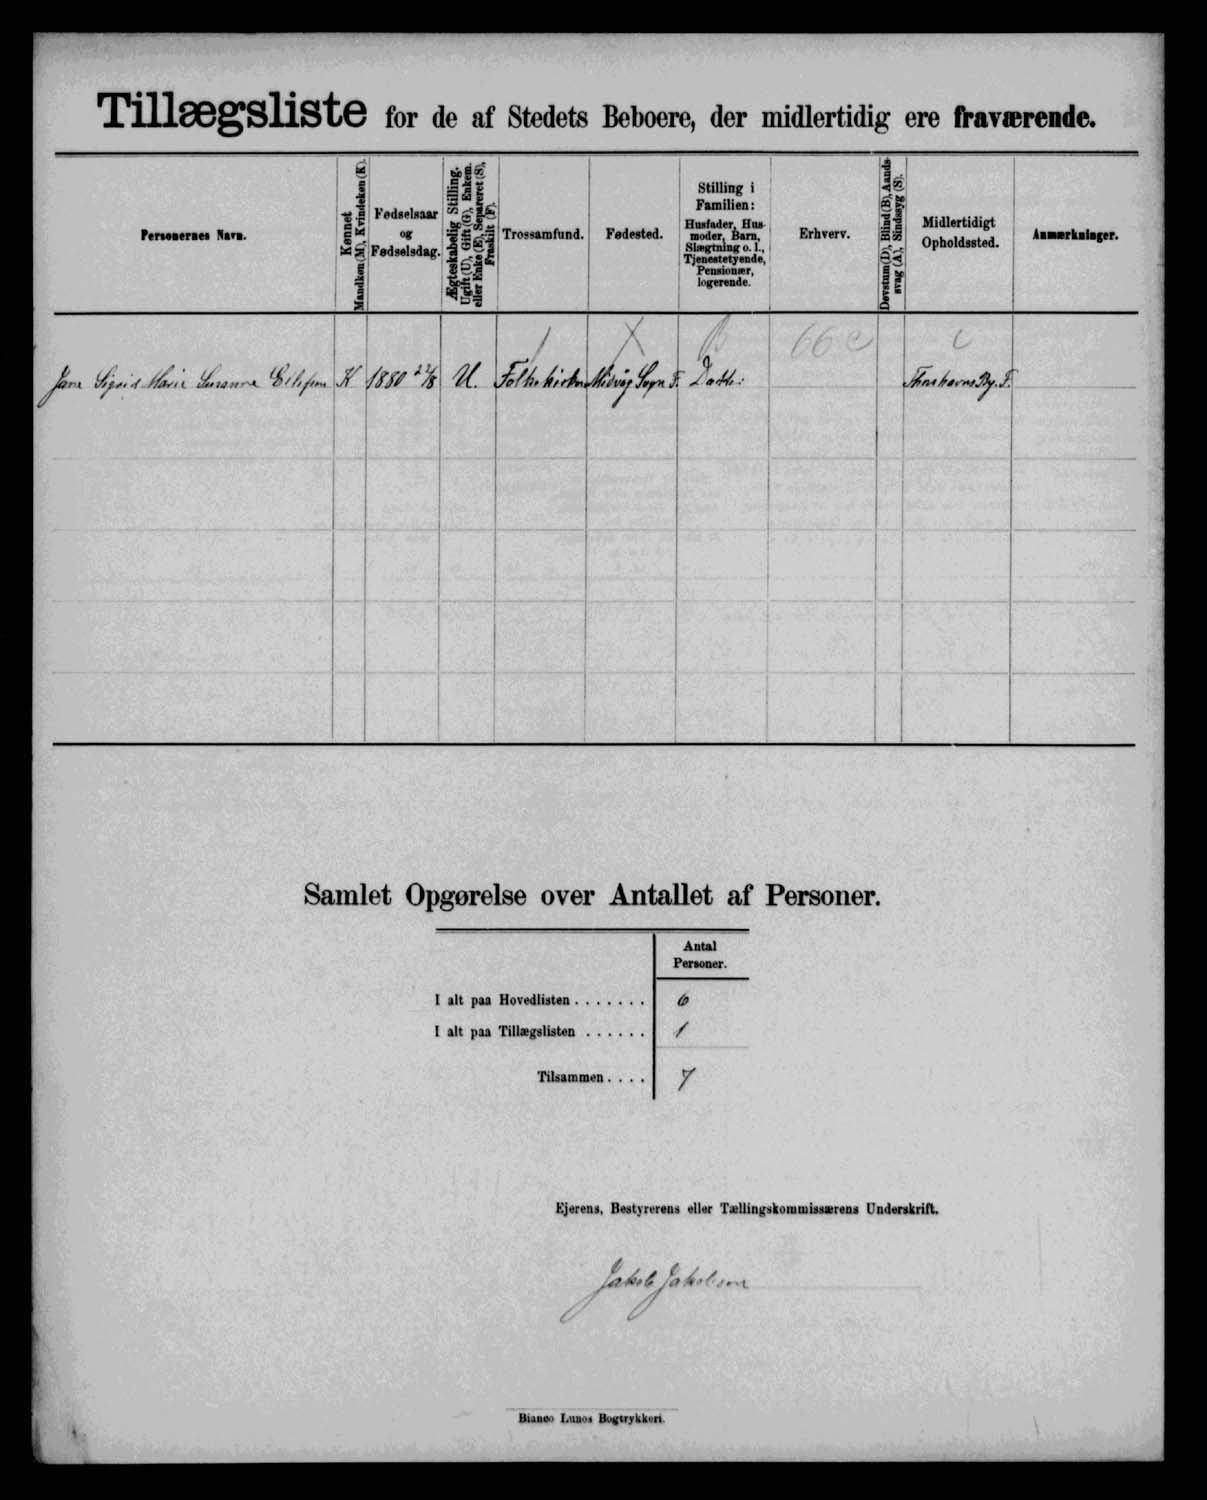 Tillægsliste for de af Stedets Beboere, der midlertidig ere fraværende.
Personernes Navn.
Kønnet
Mandkøn (M), Kvindekøn (K).
Fødselsaar
og
Fødselsdag.
Ægteskabelig Stilling.
Ugift (U), Gift (G), Enkem.
eller Enke (E), Separeret (S),
Fraskilt (F).
Trossamfund.
Fødested.
Stilling i
Familien:
Husfader, Hus-
moder, Barn,
Slægtning o. l.,
Tjenestetyende,
Pensionær,
logerende.
Erhverv.
Døvstum (D), Blind (B), Aands-
svag (A), Sindssyg (S).
Midlertidigt
Opholdssted.
Anmærkninger.
66 c
Sigrid Marie Susanne K 1880 22/8 U. Folkekirken Midvåg Sogn F. Datter Thorshavns By. F.
Samlet Opgørelse over Antallet af Personer.
Antal
Personer.
I alt paa Hovedlisten . . . . . . . 6
I alt paa Tillægslisten . . . . . . 1
Tilsammen . . . . 7
Ejerens, Bestyrerens eller Tællingskommissærens Underskrift.
Jakob Jakobsen
Bianco Lunos Bogtrykkeri.